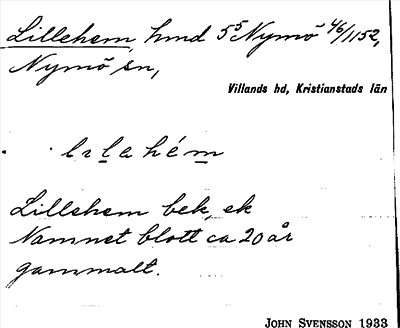 Lillehem, hmd 5⁵ Nymö 46/1152,
Nymö sn,
Villands hd, Kristianstads län
lılahém
Lillehem bek, ek
Namnet blott ca 20 år
gammalt.
JOHN SVENSSON 1933